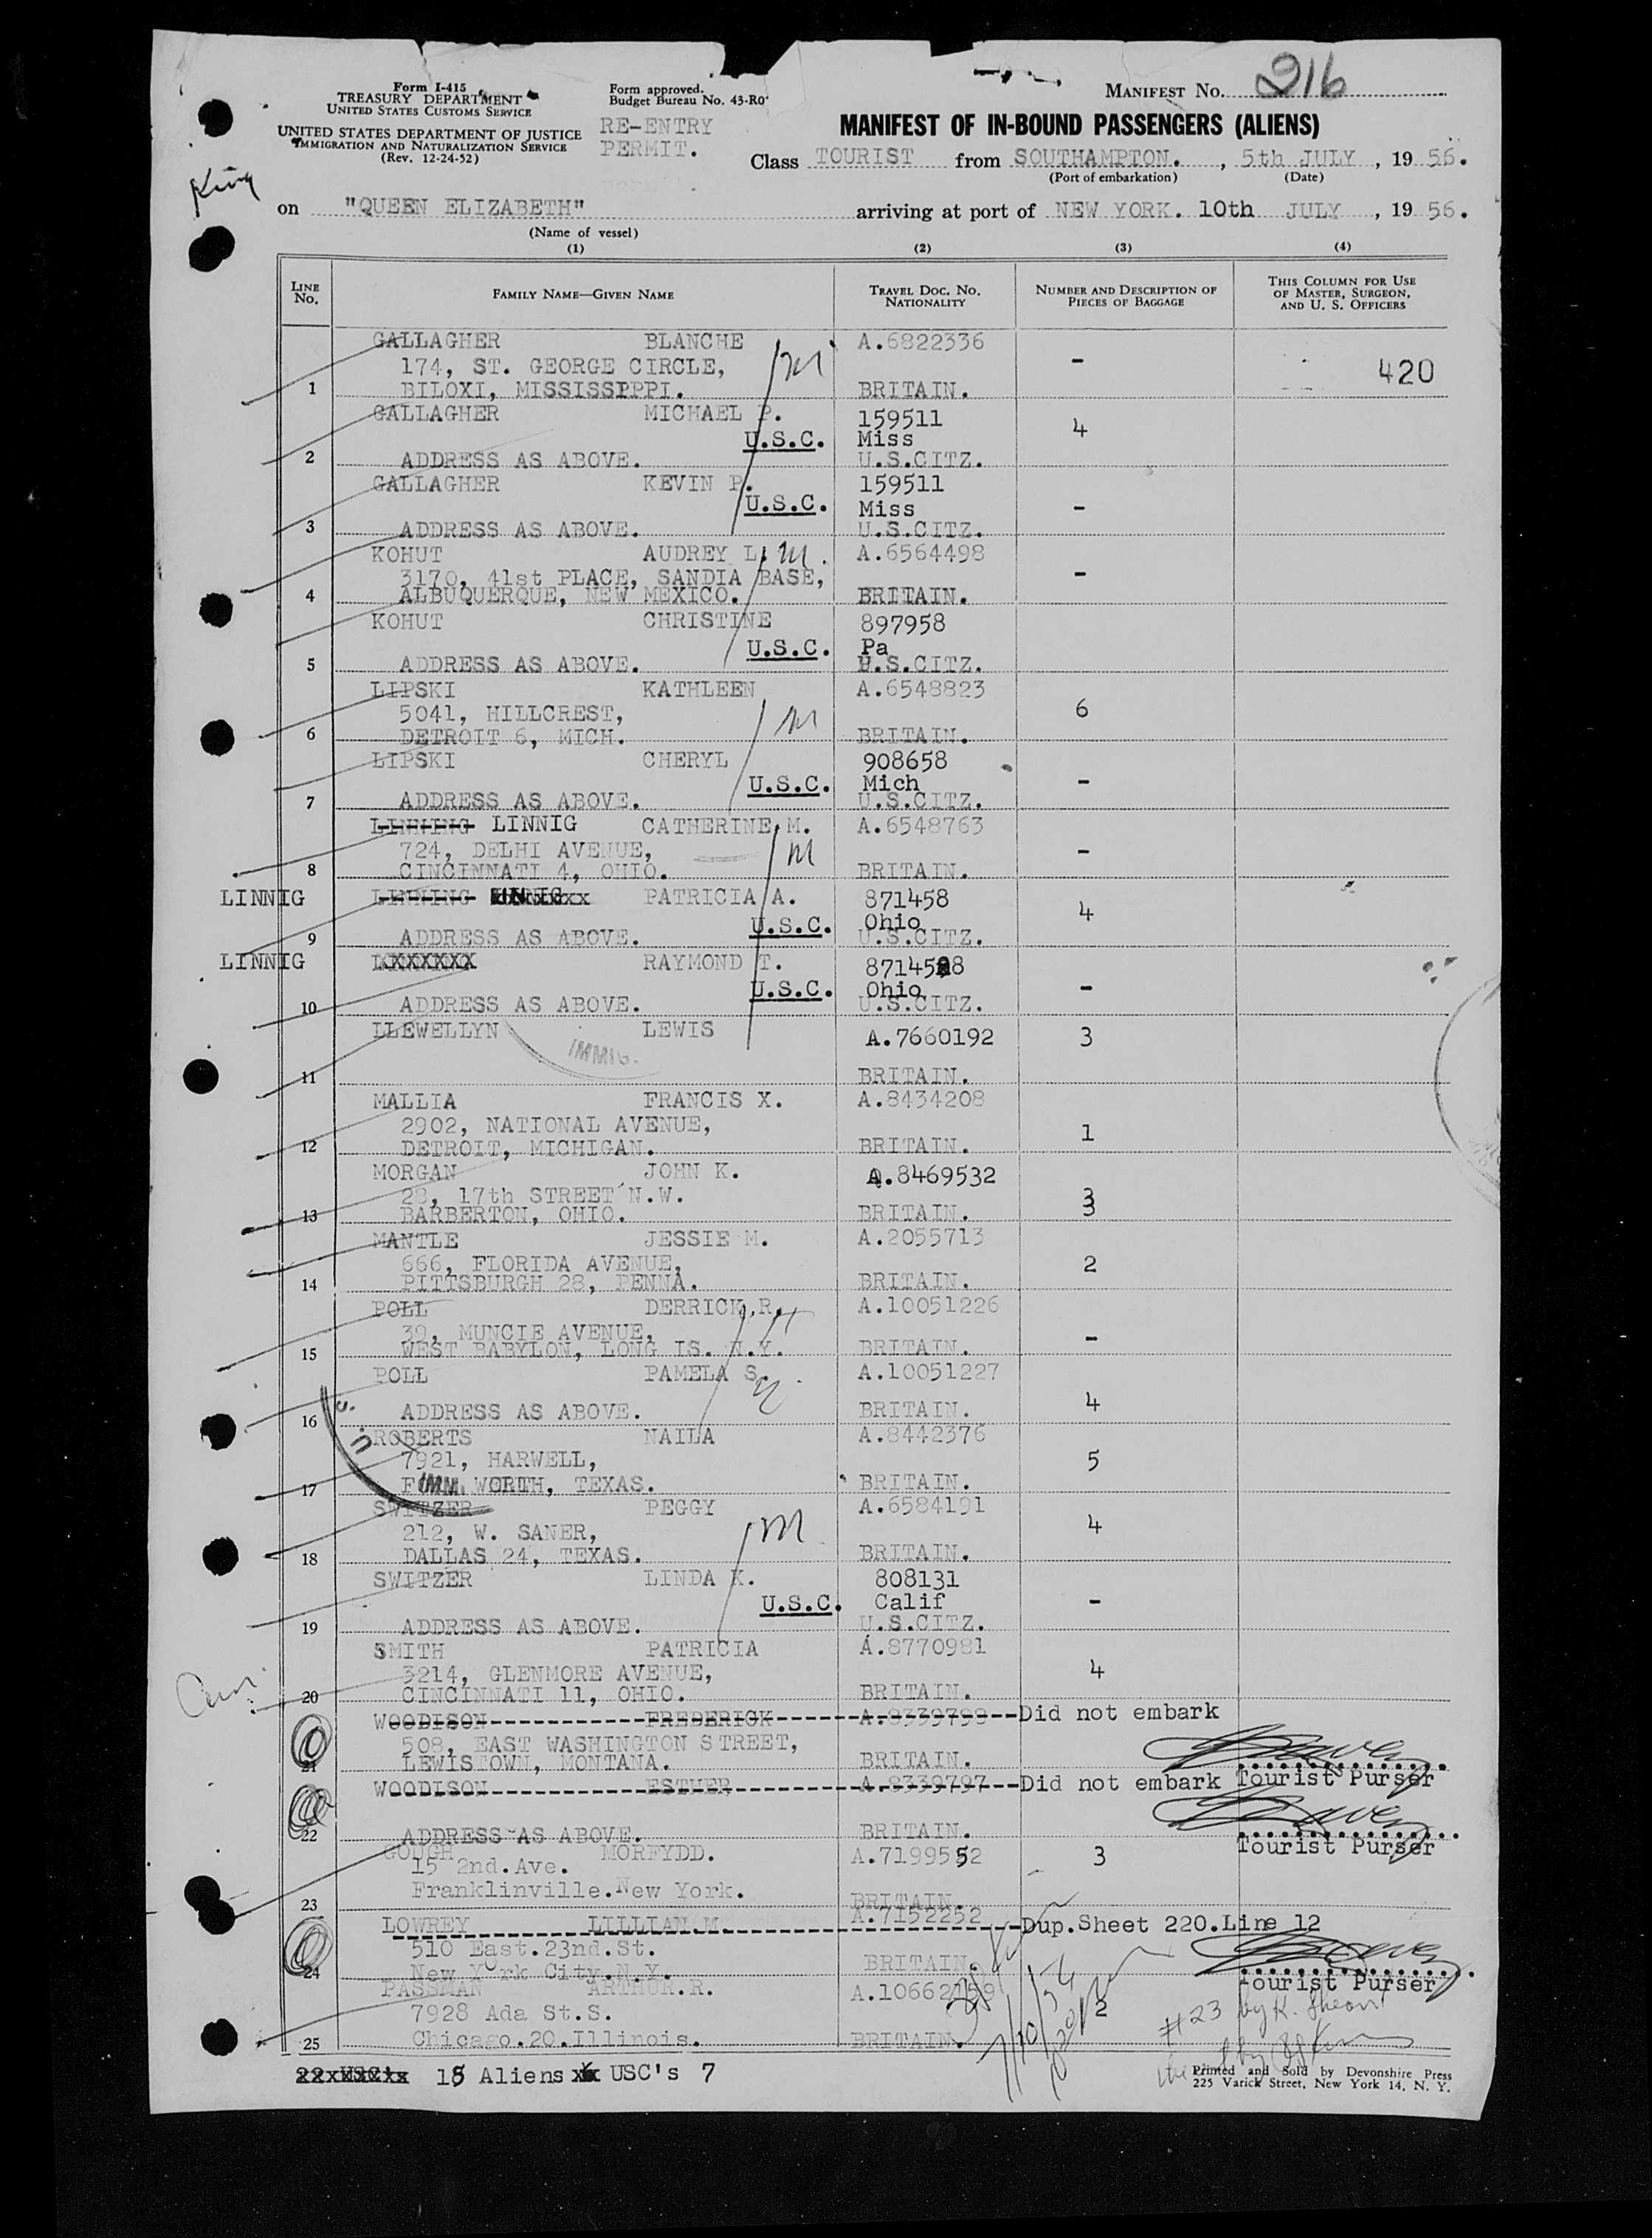 Form I-415
TREASURY DEPARTMENT
UNITED STATES CUSTOMS SERVICE
UNITED STATES DEPARTMENT OF JUSTICE
IMMIGRATION AND NATURALIZATION SERVICE
(Rev. 12-24-52)
Form approved.
Budget Bureau No. 43-RO
RE-ENTRY
PERMIT.
MANIFEST NO. 216
MANIFEST OF IN-BOUND PASSENGERS (ALIENS)
Class TOURIST from SOUTHAMPTON. , 5th JULY , 19 56.
(Port of embarkation) (Date)
King
on "QUEEN ELIZABETH" arriving at port of NEW YORK. 10th JULY , 19 56.
(Name of vessel)
(1) (2) (3) (4)
LINE NO. FAMILY NAME—GIVEN NAME TRAVEL DOC. NO. NATIONALITY NUMBER AND DESCRIPTION OF PIECES OF BAGGAGE THIS COLUMN FOR USE OF MASTER, SURGEON, AND U. S. OFFICERS
GALLAGHER BLANCHE A.6822336
174, ST. GEORGE CIRCLE, M - 420
1 BILOXI, MISSISSIPPI. BRITAIN.
GALLAGHER MICHAEL P. 159511
U.S.C. Miss 4
2 ADDRESS AS ABOVE. U.S.CITZ.
GALLAGHER KEVIN P. 159511
U.S.C. Miss -
3 ADDRESS AS ABOVE. U.S.CITZ.
KOHUT AUDREY L. M. A.6564498
3170, 41st PLACE, SANDIA BASE, -
4 ALBUQUERQUE, NEW MEXICO. BRITAIN.
KOHUT CHRISTINE 897958
U.S.C. Pa
5 ADDRESS AS ABOVE. U.S.CITZ.
LIPSKI KATHLEEN A.6548823
5041, HILLCREST, M 6
6 DETROIT 6, MICH. BRITAIN.
LIPSKI CHERYL 908658
U.S.C. Mich -
7 ADDRESS AS ABOVE. U.S.CITZ.
LINNING LINNIG CATHERINE M. A.6548763
724, DELHI AVENUE, M -
8 CINCINNATI 4, OHIO. BRITAIN.
LINNIG LINNING PATRICIA A. 871458
U.S.C. Ohio 4
9 ADDRESS AS ABOVE. U.S.CITZ.
LINNIG XXXXXXX RAYMOND T. 871458
U.S.C. Ohio -
10 ADDRESS AS ABOVE. U.S.CITZ.
LLEWELLYN LEWIS A.7660192 3
IMMIG.
11 BRITAIN.
MALLIA FRANCIS X. A.8434208
2902, NATIONAL AVENUE, 1
12 DETROIT, MICHIGAN. BRITAIN.
MORGAN JOHN K. A.8469532
28, 17th STREET N.W. 3
13 BARBERTON, OHIO. BRITAIN.
MANTLE JESSIE M. A.2055713
666, FLORIDA AVENUE, 2
14 PITTSBURGH 28, PENNA. BRITAIN.
POLL DERRICK.R. H A.10051226
39, MUNCIE AVENUE, -
15 WEST BABYLON, LONG IS. N.Y. BRITAIN.
POLL PAMELA S. A.10051227
16 ADDRESS AS ABOVE. BRITAIN. 4
ROBERTS NAILA A.8442376
7921, HARWELL, 5
17 WORTH, TEXAS. BRITAIN.
SWITZER PEGGY A.6584191
212, W. SANER, M 4
18 DALLAS 24, TEXAS. BRITAIN.
SWITZER LINDA K. 808131
U.S.C. Calif -
19 ADDRESS AS ABOVE. U.S.CITZ.
SMITH PATRICIA A.8770981
3214, GLENMORE AVENUE, 4
20 CINCINNATI 11, OHIO. BRITAIN.
WOODISON FREDERICK A.8339798 Did not embark
508, EAST WASHINGTON STREET,
21 LEWISTOWN, MONTANA. BRITAIN.
WOODISON ESTHER A.8339797 Did not embark Tourist Purser
22 ADDRESS AS ABOVE. BRITAIN.
GOUGH MORFYDD. A.7199552 3 Tourist Purser
15 2nd.Ave.
Franklinville.New York.
23 BRITAIN.
LOWREY LILLIAN M. A.7152252 Dup.Sheet 220.Line 12
510 East.23nd.St.
24 New York City.N.Y. BRITAIN.
PASSMAN ARTHUR.R. A.10662159 Tourist Purser
7928 Ada St.S. 2
25 Chicago.20.Illinois. BRITAIN.
7/10/56
#23 by K.
22xUSC'xx 18 Aliens USC's 7
Printed and Sold by Devonshire Press
225 Varick Street, New York 14, N. Y.